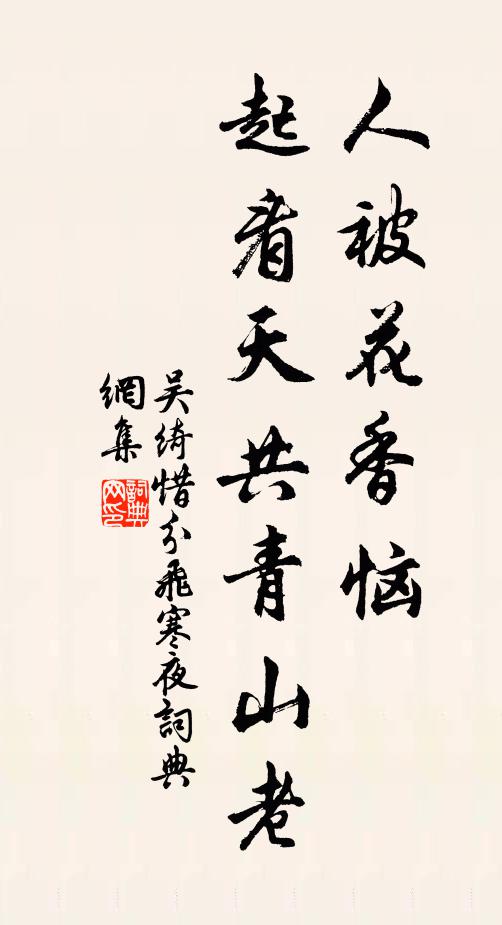 人被花香恼
起看天共青山老
吴绮惜分飛寒夜詞典
網集
詞典
网印